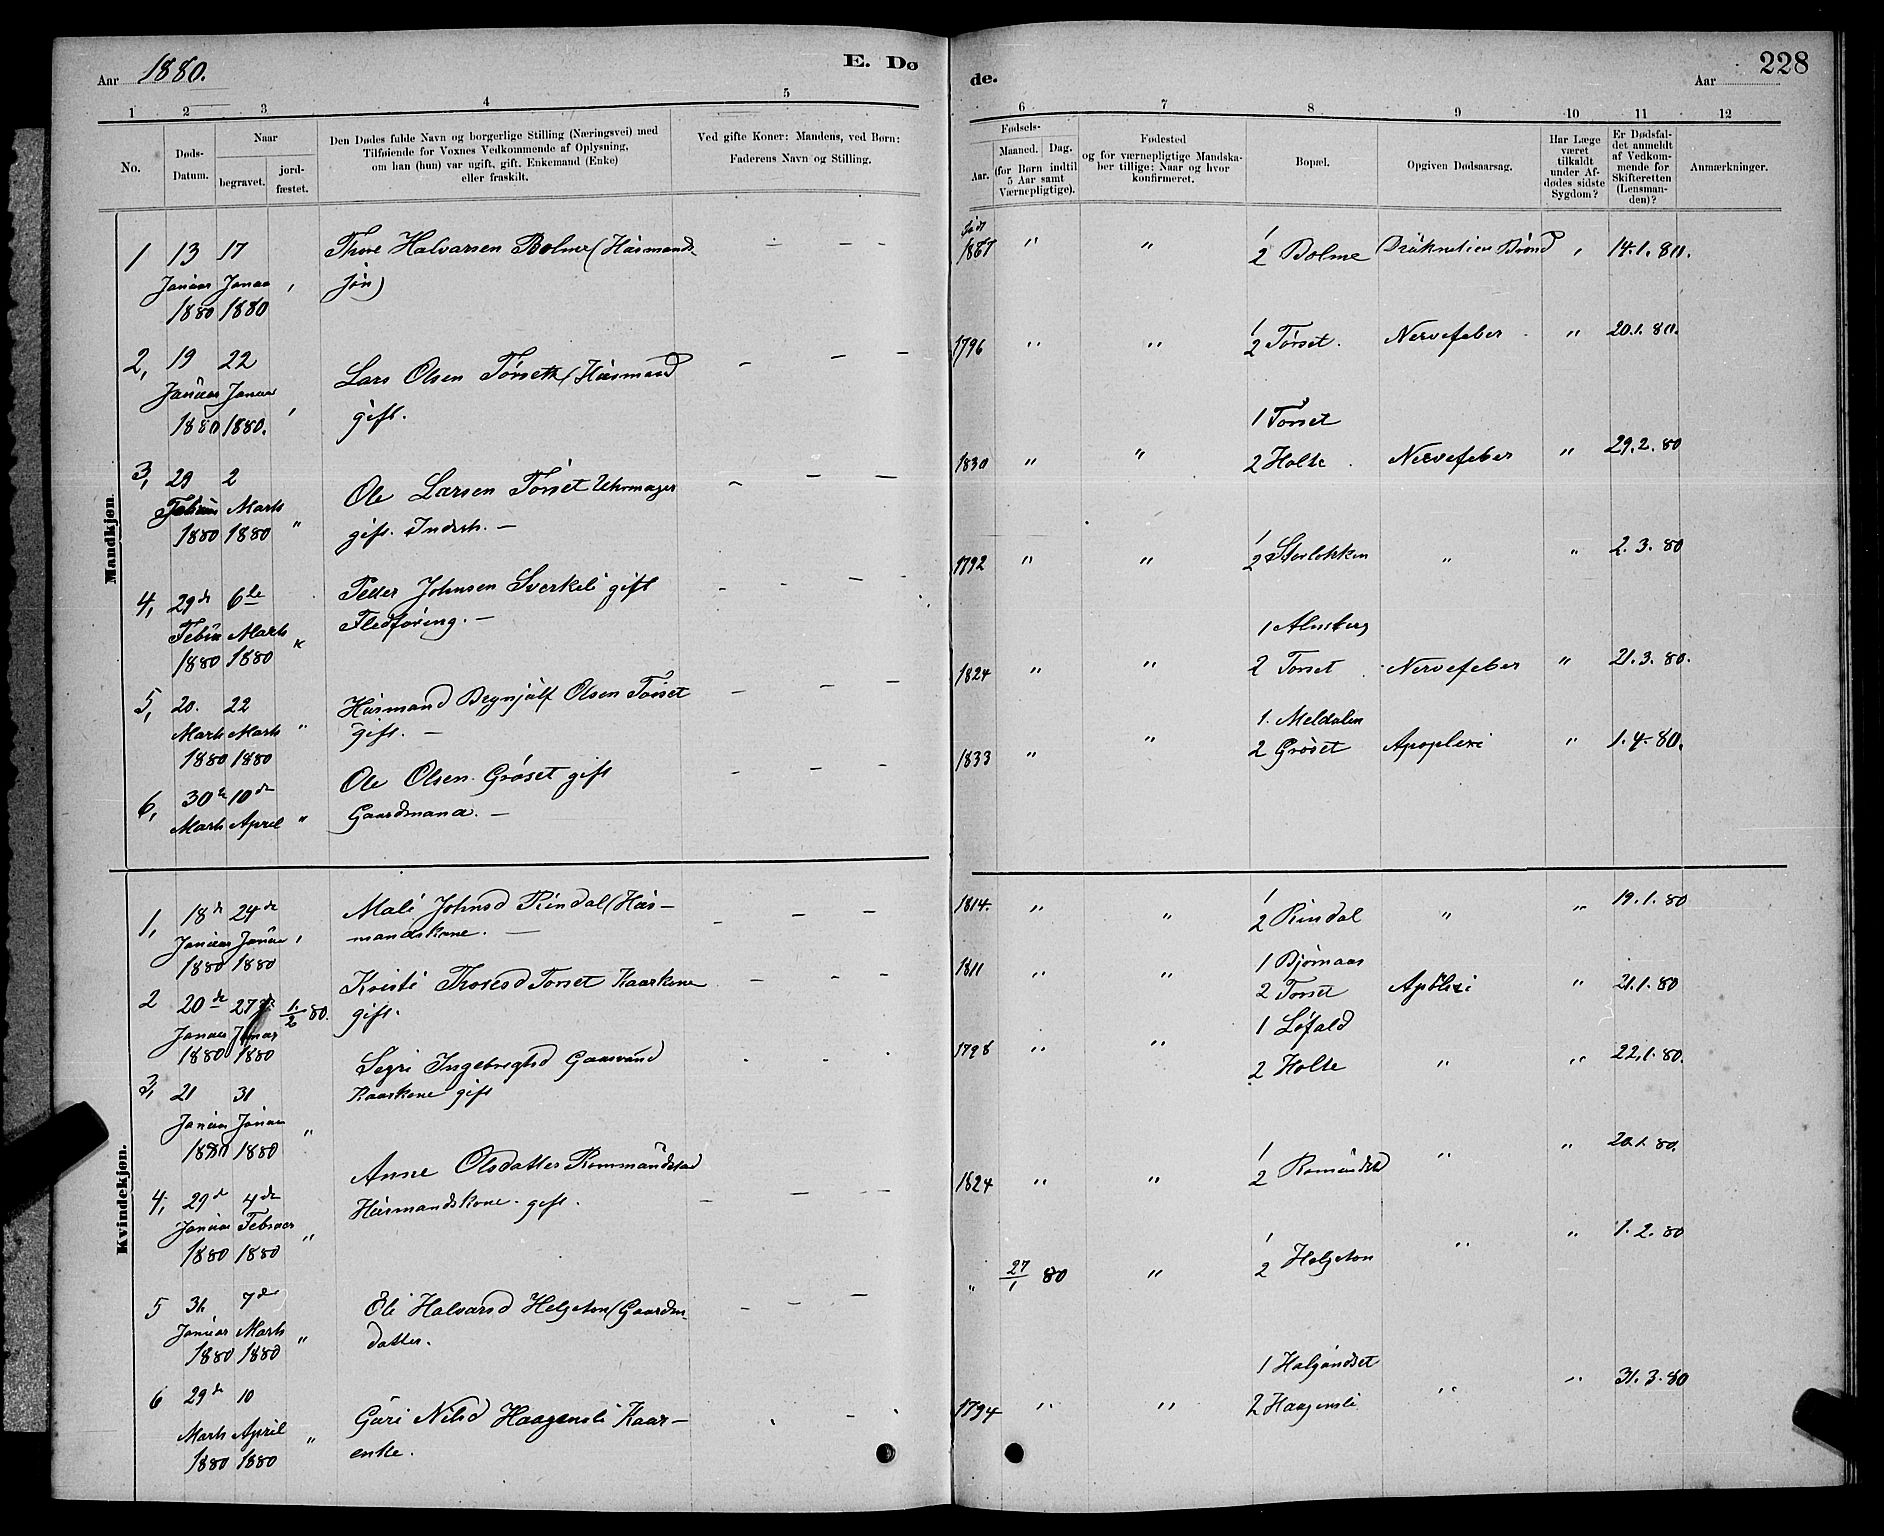 Aar 1880.
E. Dø
de.
Aar
228
1 2 3 4 5 6 7 8 9 10 11 12
No.
Døds-
Datum.
Naar
begravet.
jord-
fæstet.
Den Dødes fulde Navn og borgerlige Stilling (Næringsvei) med
Tilføiende for Voxnes Vedkommende af Oplysning,
om han (hun) var ugift, gift, Enkemand (Enke)
eller fraskilt.
Ved gifte Koner: Mandens, ved Børn:
Faderens Navn og Stilling.
Fødsels-
Aar.
Maaned. Dag.
(for Børn indtil
5 Aar samt
Værnepligtige).
Fødested
og for værnepligtige Mandska-
ber tillige: Naar og hvor
konfirmeret.
Bopæl.
Opgiven Dødsaarsag.
Har Læge
været
tilkaldt
under Af-
dødes sidste
Sygdom?
Er Dødsfal-
det anmeldt
af Vedkom-
mende for
Skifteretten
(Lensman-
den)?
Anmærkninger.
Mandkjøn.
1 13 17 Thore Halvarsen Bolme (Husmands - - - født 1867 " " 1 2 Bolme 14.1.80.
Januar Janua søn)
1880 1880
2, 19 22 Lars Olsen Torseth (Husmand - - - 1796 " " 1 2 Torset. Nervefeber " 20.1.80.
Januar Januar gift.
1880 1880.
3, 29 2 Ole Larsen Torset Uhrmager - - - 1830 " " 1 Torset 2 Holte Nervefeber " 29.2.80
Februar Marts " gift. Inderh. -
1880 1880
4, 29de 6te Peder Johnsen Sverkeli gift - - - 1792 " " 1 2 Storløkken " " 2.3.80
Febru Marts " Fledføring. -
1880 1880
5, 20. 22 Husmand Brynjulf Olsen Torset - - - 1824 " " 1 Almberg 2 Torset Nervefeber " 21.3.80.
Marts Marts " gift. -
1880 1880
6, 30te 10de Ole Olsen Grøset gift - - - 1833 " " 1. Meldalen 2 Grøset Apoplexi " 1.4.80.
Marts April " Gaardmand. -
Kvindekjøn.
1, 18de 24de Mali Johnsd Rindal (Hus- - - - 1814. " " 1 2 Rindal " " 19.1.80
Januar Januar mandskone. -
1880 1880
2 20de 27de 1/2 80. Kristi Thoresd Torset Kaarkone - - - 1811 " " 1 Bjørnaas 2 Torset " 21.1.80
Januar Januar gift.
1880 1880
3, 21 31 Segri Ingebrigtsd Gaasvand - - - 1798 " " 1 Løfald 2 Holte " " 22.1.80.
Januar Januar " Kaarkone gift
1880 1880
4, 29de 4de Anne Olsdatter Rommundstad - - - 1824 " " 1 2 Romundstad " "
Januar Februar " Husmandskone. gift.
1880 1880
5 31. 7de Eli Halvarsd Helgeton (Gaardm - - - " 27/1 80 " 1 2 Helgeton " " 1.2.80
Januar Marts " datter.
1880 1880
6 29de 10 Guri Nilsd Haagensli Kaar- - - - 1794 " " 1 Halgundset 2 Haagensli " " 31.3.80
Marts April " enke.
1880 1880